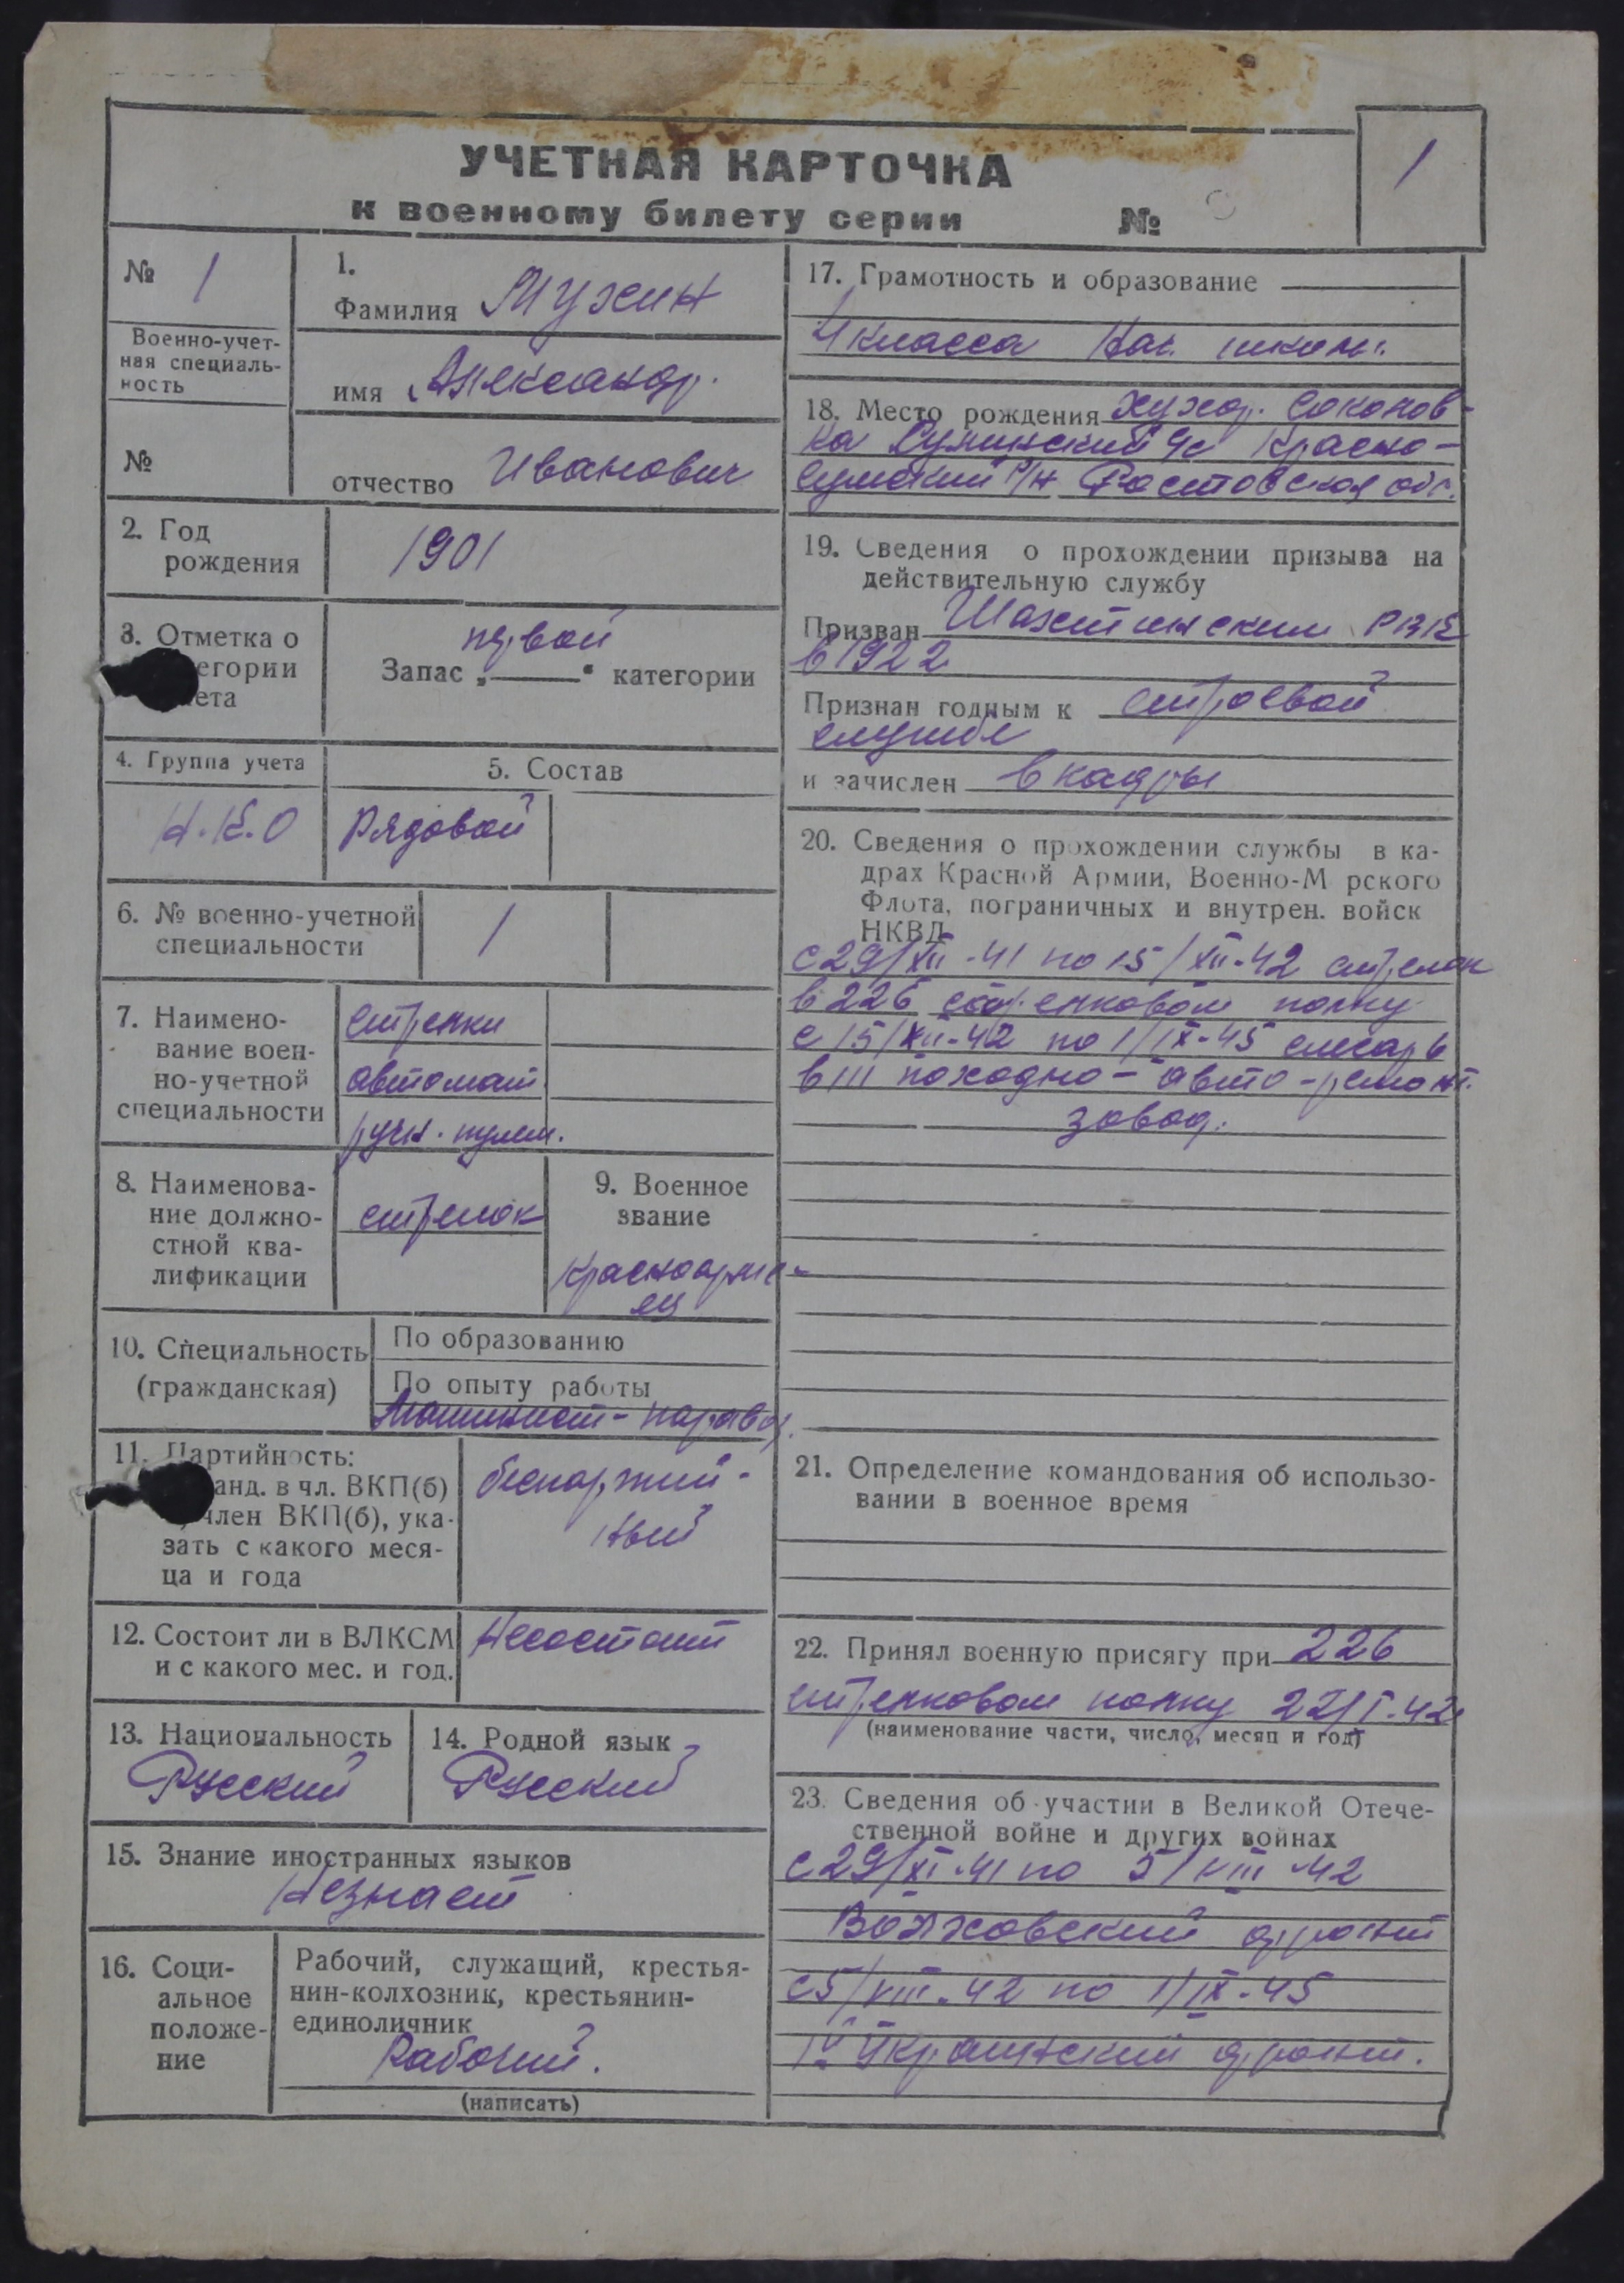 УЧЕТНАЯ КАРТОЧКА
к военному билету серии №
1
№ 1
Военно-учет-
ная специаль-
ность
№
1.
Фамилия Мухин
имя Александр.
отчество Иванович
2. Год
рождения
1901
3. Отметка о
егории
ета
первой
Запас „ “ категории
4. Группа учета
Н.К.О
5. Состав
Рядовой
6. № военно-учетной
специальности
1
7. Наимено-
вание воен-
но-учетной
специальности
стрелки
автомат.
ручн. пулем.
8. Наименова-
ние должно-
стной ква-
лификации
стрелок
9. Военное
звание
Красноарме-
ец
10. Специальность
(гражданская)
По образованию
По опыту работы
Машинист-паровоз.
11. Партийность:
анд. в чл. ВКП(б)
член ВКП(б), ука-
зать с какого меся-
ца и года
беспартий-
ный
12. Состоит ли в ВЛКСМ
и с какого мес. и год.
Несостоит
13. Национальность
Русский
14. Родной язык
Русский
15. Знание иностранных языков
Незнает
16. Соци-
альное
положе-
ние
Рабочий, служащий, крестья-
нин-колхозник, крестьянин-
единоличник
Рабочий.
(написать)
17. Грамотность и образование
4 класса Нач. школы.
18. Место рождения хутор.
ка с/с Красно-
сулинский р/н Ростовская обл.
19. Сведения о прохождении призыва на
действительную службу
Призван Шахтинским РВК
в 1922
Признан годным к строевой
службе
и зачислен в кадры
20. Сведения о прохождении службы в ка-
драх Красной Армии, Военно-М рского
Флота, пограничных и внутрен. войск
НКВД
с 29/XII-41 по 15/XII-42 стрелок
в 226 стрелковом полку
с 15/XII-42 по 1/IX-45 слесарь
в III походно-авто-ремонт.
завод.
21. Определение командования об использо-
вании в военное время
22. Принял военную присягу при 226
стрелковом полку 22/I-42
(наименование части, число, месяц и год)
23. Сведения об участии в Великой Отече-
ственной войне и других войнах
с 29/XI-41 по 5/VIII-42
Волховский фронт
с 5/VIII-42 по 1/IX-45
IV Украинский фронт.